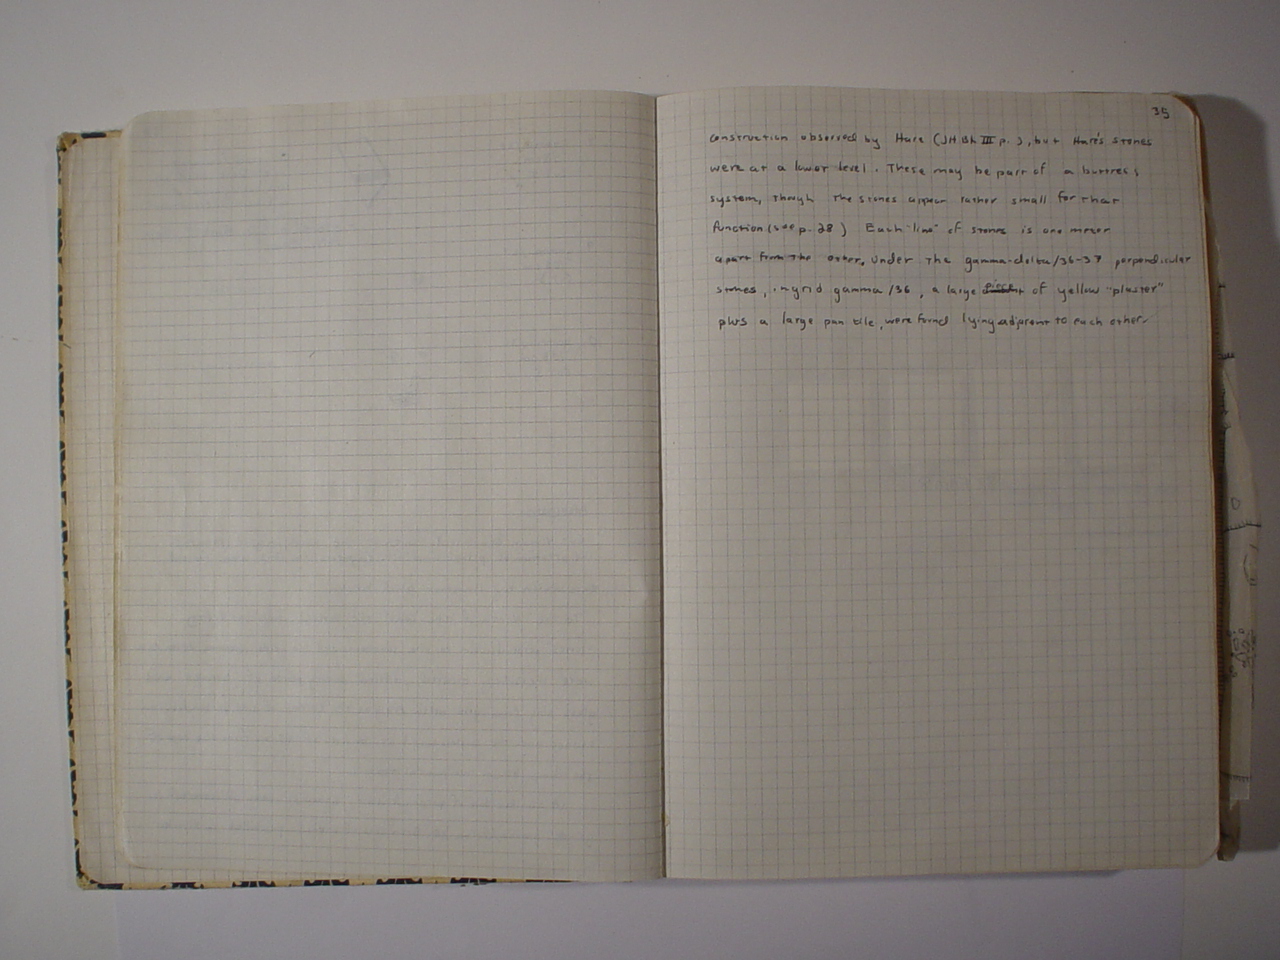 35
construction observed by Hare (JH Bk III p. ), but Hare's stones
were at a lower level. These may be part of a buttress
system, though the stones appear rather small for that
function (see p. 28) Each "line" of stones is one meter
apart from the other. Under the gamma-delta/36-37 perpendicular
stones, in grid gamma/36, a large piece of yellow "plaster"
plus a large pan tile, were found lying adjacent to each other.